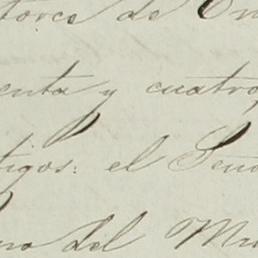 torce de En
enta y cuatro,
tigos: el Seño
no del Mu